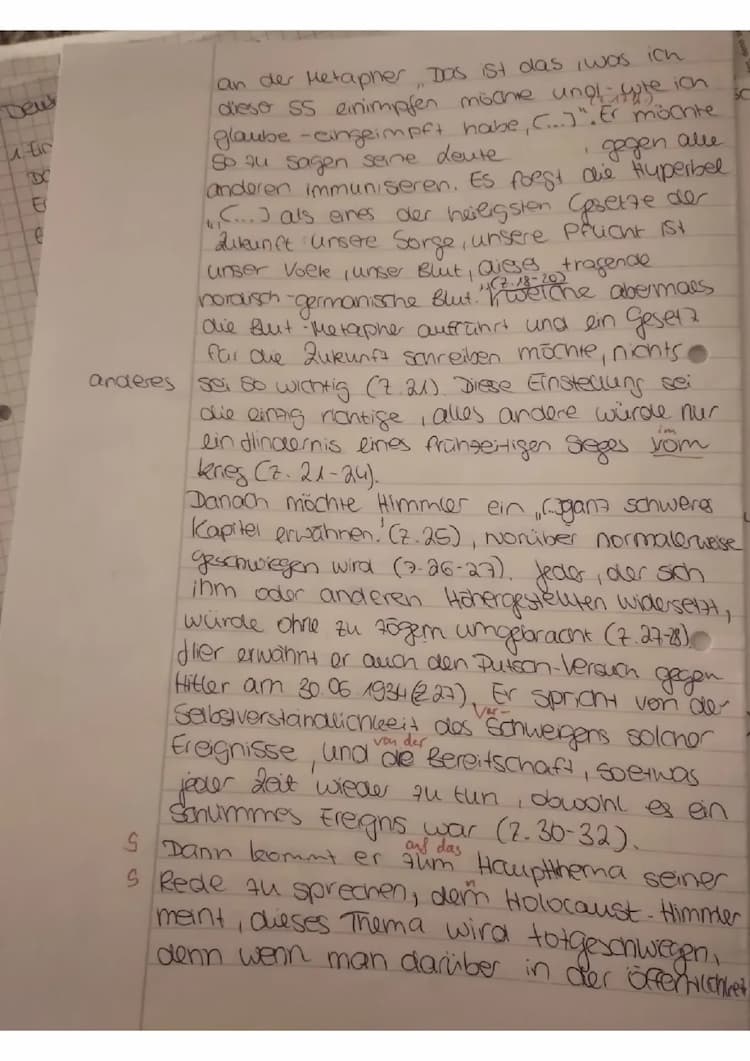 an der Metapher „Das ist das, was ich
dieser SS einimpfen möchte und - wie ich
glaube - eingeimpft habe, (...)". Er möchte
so zu sagen seine Leute, gegen alle
anderen immunisieren. Es folgt die Hyperbel
„(...) als eines der heiligsten Gesetze der
Zukunft: unsere Sorge, unsere Pflicht ist
unser Volk, unser Blut, dieses tragende
nordisch-germanische Blut." (Z. 18-20) welche abermals
die Blut-Metapher aufführt und ein Gesetz
für die Zukunft schreiben möchte, nichts
anderes sei so wichtig (Z. 21) Diese Einstellung sei
die einzig richtige, alles andere würde nur
ein Hindernis eines frühzeitigen Sieges vom
im
Krieg (Z. 21-24).
Danach möchte Himmler ein „(...) ganz schweres
Kapitel erwähnen." (Z. 25), worüber normalerweise
geschwiegen wird (Z. 26-27). Jeder, der sich
ihm oder anderen Höhergestellten widersetzt,
würde ohne zu zögern umgebracht (Z. 27-28)
Hier erwähnt er auch den Putsch-Versuch gegen
Hitler am 30.06 1934 (Z. 27). Er spricht von der
Selbstverständlichkeit des Ver- Schweigens solcher
Ereignisse, und von der die Bereitschaft, soetwas
jeder Zeit wieder zu tun, obwohl es ein
schlimmes Ereigns war (Z. 30-32).
S Dann kommt er zum auf das Hauptthema seiner
S Rede zu sprechen, dem n Holocaust. Himmler
meint, dieses Thema wird totgeschwegen,
denn wenn man darüber in der Öffentlichkeit
Deut